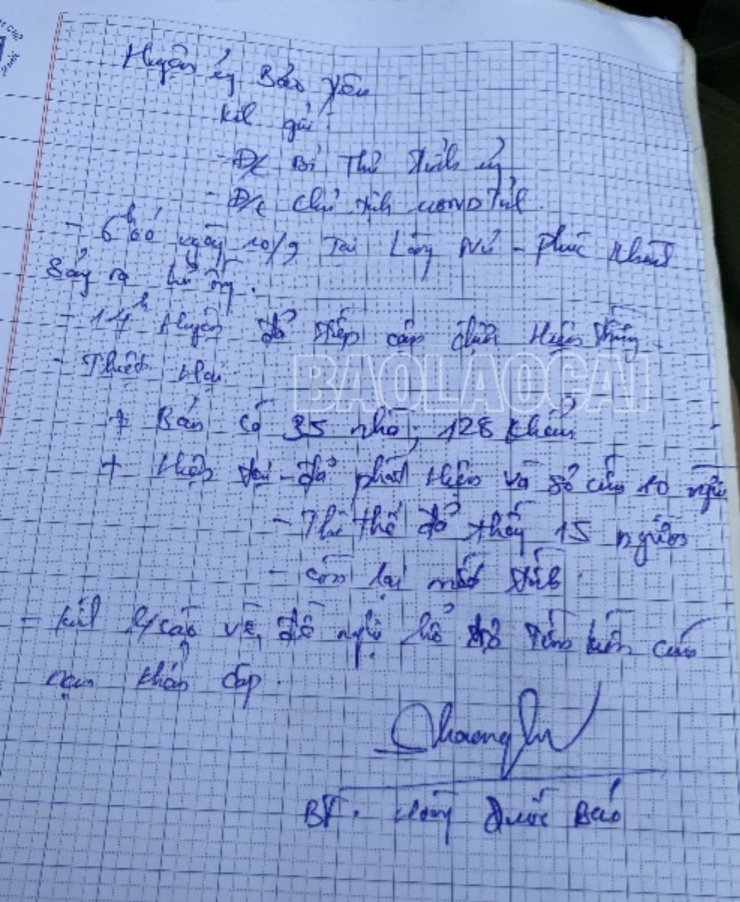 Huyện ủy Bảo Yên
Kính gửi:
- Đ/c Bí Thư Tỉnh ủy
- Đ/c Chủ tịch UBND Tỉnh.
- 6h00 ngày 10/9 Tại Làng Nủ - Phúc Khánh
Sảy ra lũ ống.
- 14h Huyện đã tiếp cận được Hiện trường
- Thiệt Hại
BAOLAOCAI
+ Bản có 35 nhà, 128 khẩu
+ Hiện tại - đã phát Hiện và sơ cứu 10 người
- Thi thể đã thấy 15 người
- còn lại mất tích.
- Kính b/cáo và đề nghị hỗ trợ tìm kiếm cứu
nạn khẩn cấp.
BT. Hoàng Quốc Bảo